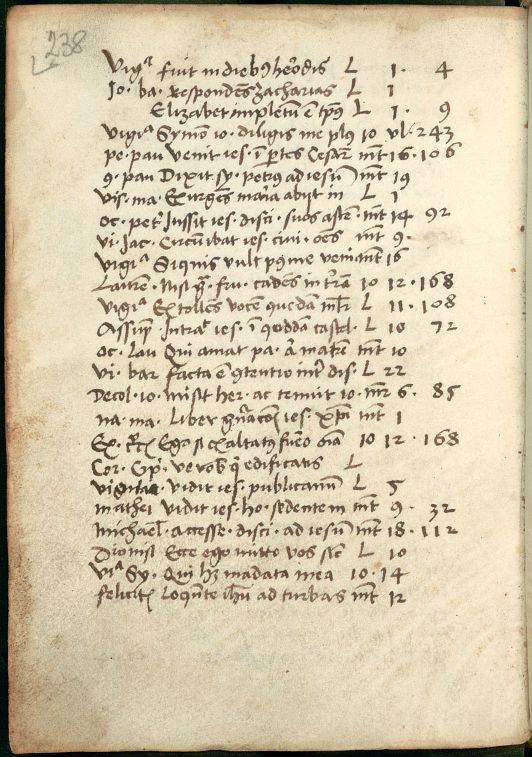 238
Vigᵃ fuit in diebꝰ herodis L 1 · 4
Io · ba · Respondēs zacharias L 1
Elizabet impletū ē tp̄ꝰ L 1 · 9
Vigiᵃ Symō io · diligis me plꝰ io vl · 243
pe · pau venit ies · ī ꝑtes Cesar mt 16 · 106
9 · pau Dixit sy · petrꝰ ad iesū mt 19
vis · ma · Exurgēs maria abijt in L 1
oc · pet Iussit ies · disci · suos mt 14 92
vi · Jac · Circūibat ies · civi · oēs mt 9 ·
vigiᵃ Siquis vult pꝰ me veni mt 16
Lauren · Nisi grᵃ · fru · cadēs in trā io 12 · 168
vigiᵃ Extollēs vocē quedā ml̄r L 11 · 108
Assūp̄ Intraᵗ ies · ī qoddā castel · L 10 72
oc · lau Qui amat pa · a matrē mt 10
vi · bar facta ē ꝯtentio int dis · L 22
Decol · io · misit her · ac tenuit io · mr 6 · 85
na · ma · Liber gn̄acōis ies · xp̄i mt 1
Ex · Ego si exaltatꝰ fuero oīa io 12 · 168
Cor · Cpi · ve vob q edificatis L
vigilia · vidit ies · publicanū L 5
mathei vidit ies · ho · sedentem mt 9 · 32
michael · accesse · disci · ad iesū mt 18 · 112
Dionisi Ecce ego mitto vos sic L 10
viᵃ Sy · Qui hꝫ mādata mea io · 14
felicit Loquēte ihū ad turbas mt 12